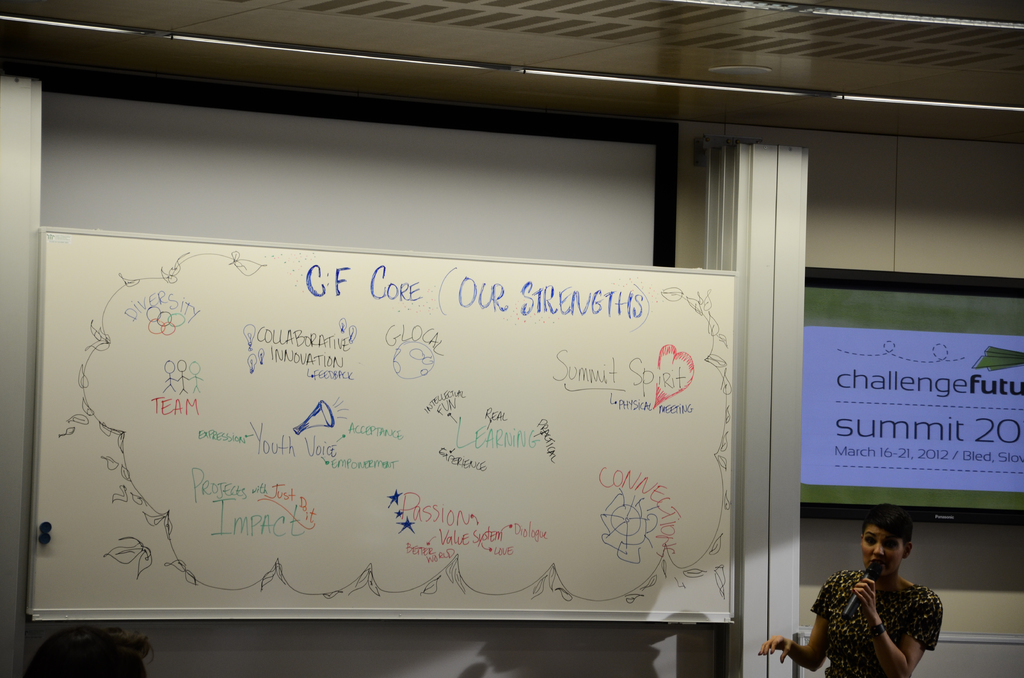 CF CORE (OUR STRENGTHS)
DIVERSITY
COLLABORATIVE
INNOVATION
FEEDBACK
GLOCAL
TEAM
SUMMIT SPIRIT
PHYSICAL MEETING
EXPRESSION
YOUTH VOICE
ACCEPTANCE
EMPOWERMENT
INTELLECTUAL
FUN
REAL
LEARNING
PRACTICAL
EXPERIENCE
PROJECTS WITH
IMPACT
Just Do it
PASSION
VALUE SYSTEM
Dialogue
BETTER
WORLD
LOVE
CONNECTIONS
challengefutu
summit 20
March 16-21, 2012 / Bled, Slov
Panasonic